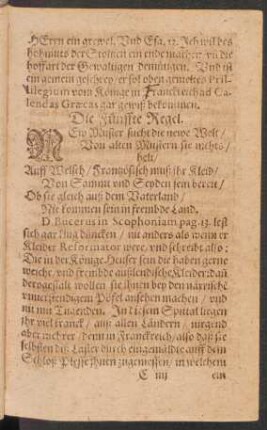 HErrn ein grewel. Vnd Esa. 12. Ich wil des
hohmuts der Stoltzen ein ende machen / vñ die
hoffart der Gewaltigen demütigen. Vnd ist
ein gemein geschrey / er sol oben gemeltes Pri-
uilegium vom Könige in Franckreich ad Ca-
lendas Græcas gar gewiß bekommen.
Die Fünffte Regel.
NEw Muster sucht die newe Welt /
Von alten Mustern sie nichts
helt /
Auff Welsch / Frantzösisch muß ihr Kleid /
Von Sammt vnd Seyden sein bereit /
Ob sie gleich auß dem Vaterland /
Nie kommen sein in frembde Land.
D. Bucerus in Scophoniam pag. 13. lest
sich gar klug düncken / nit anders als wenn er
Kleider Reformator were, vnd schreibt also:
Die in der Könige Heuser sein die haben gerne
weiche / vnd frembde außlendische Kleider dañ
der gestalt wollen sie ihnen bey den närrische
vnverstendigem Pöfel ansehen machen / vnd
nit mit Tugenden. In diesem Spittal liegen
ihr viel kranck / auß allen Ländern / nirgend
aber mehrer / denn in Franckreich / also daß sie
selbsten diß Laster durch ein gemälde auff dem
Schloß zugemessen / in welchem
ein